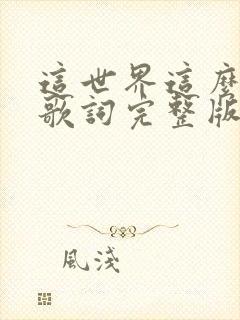 這世界這麼
歌詞完整版
風淺